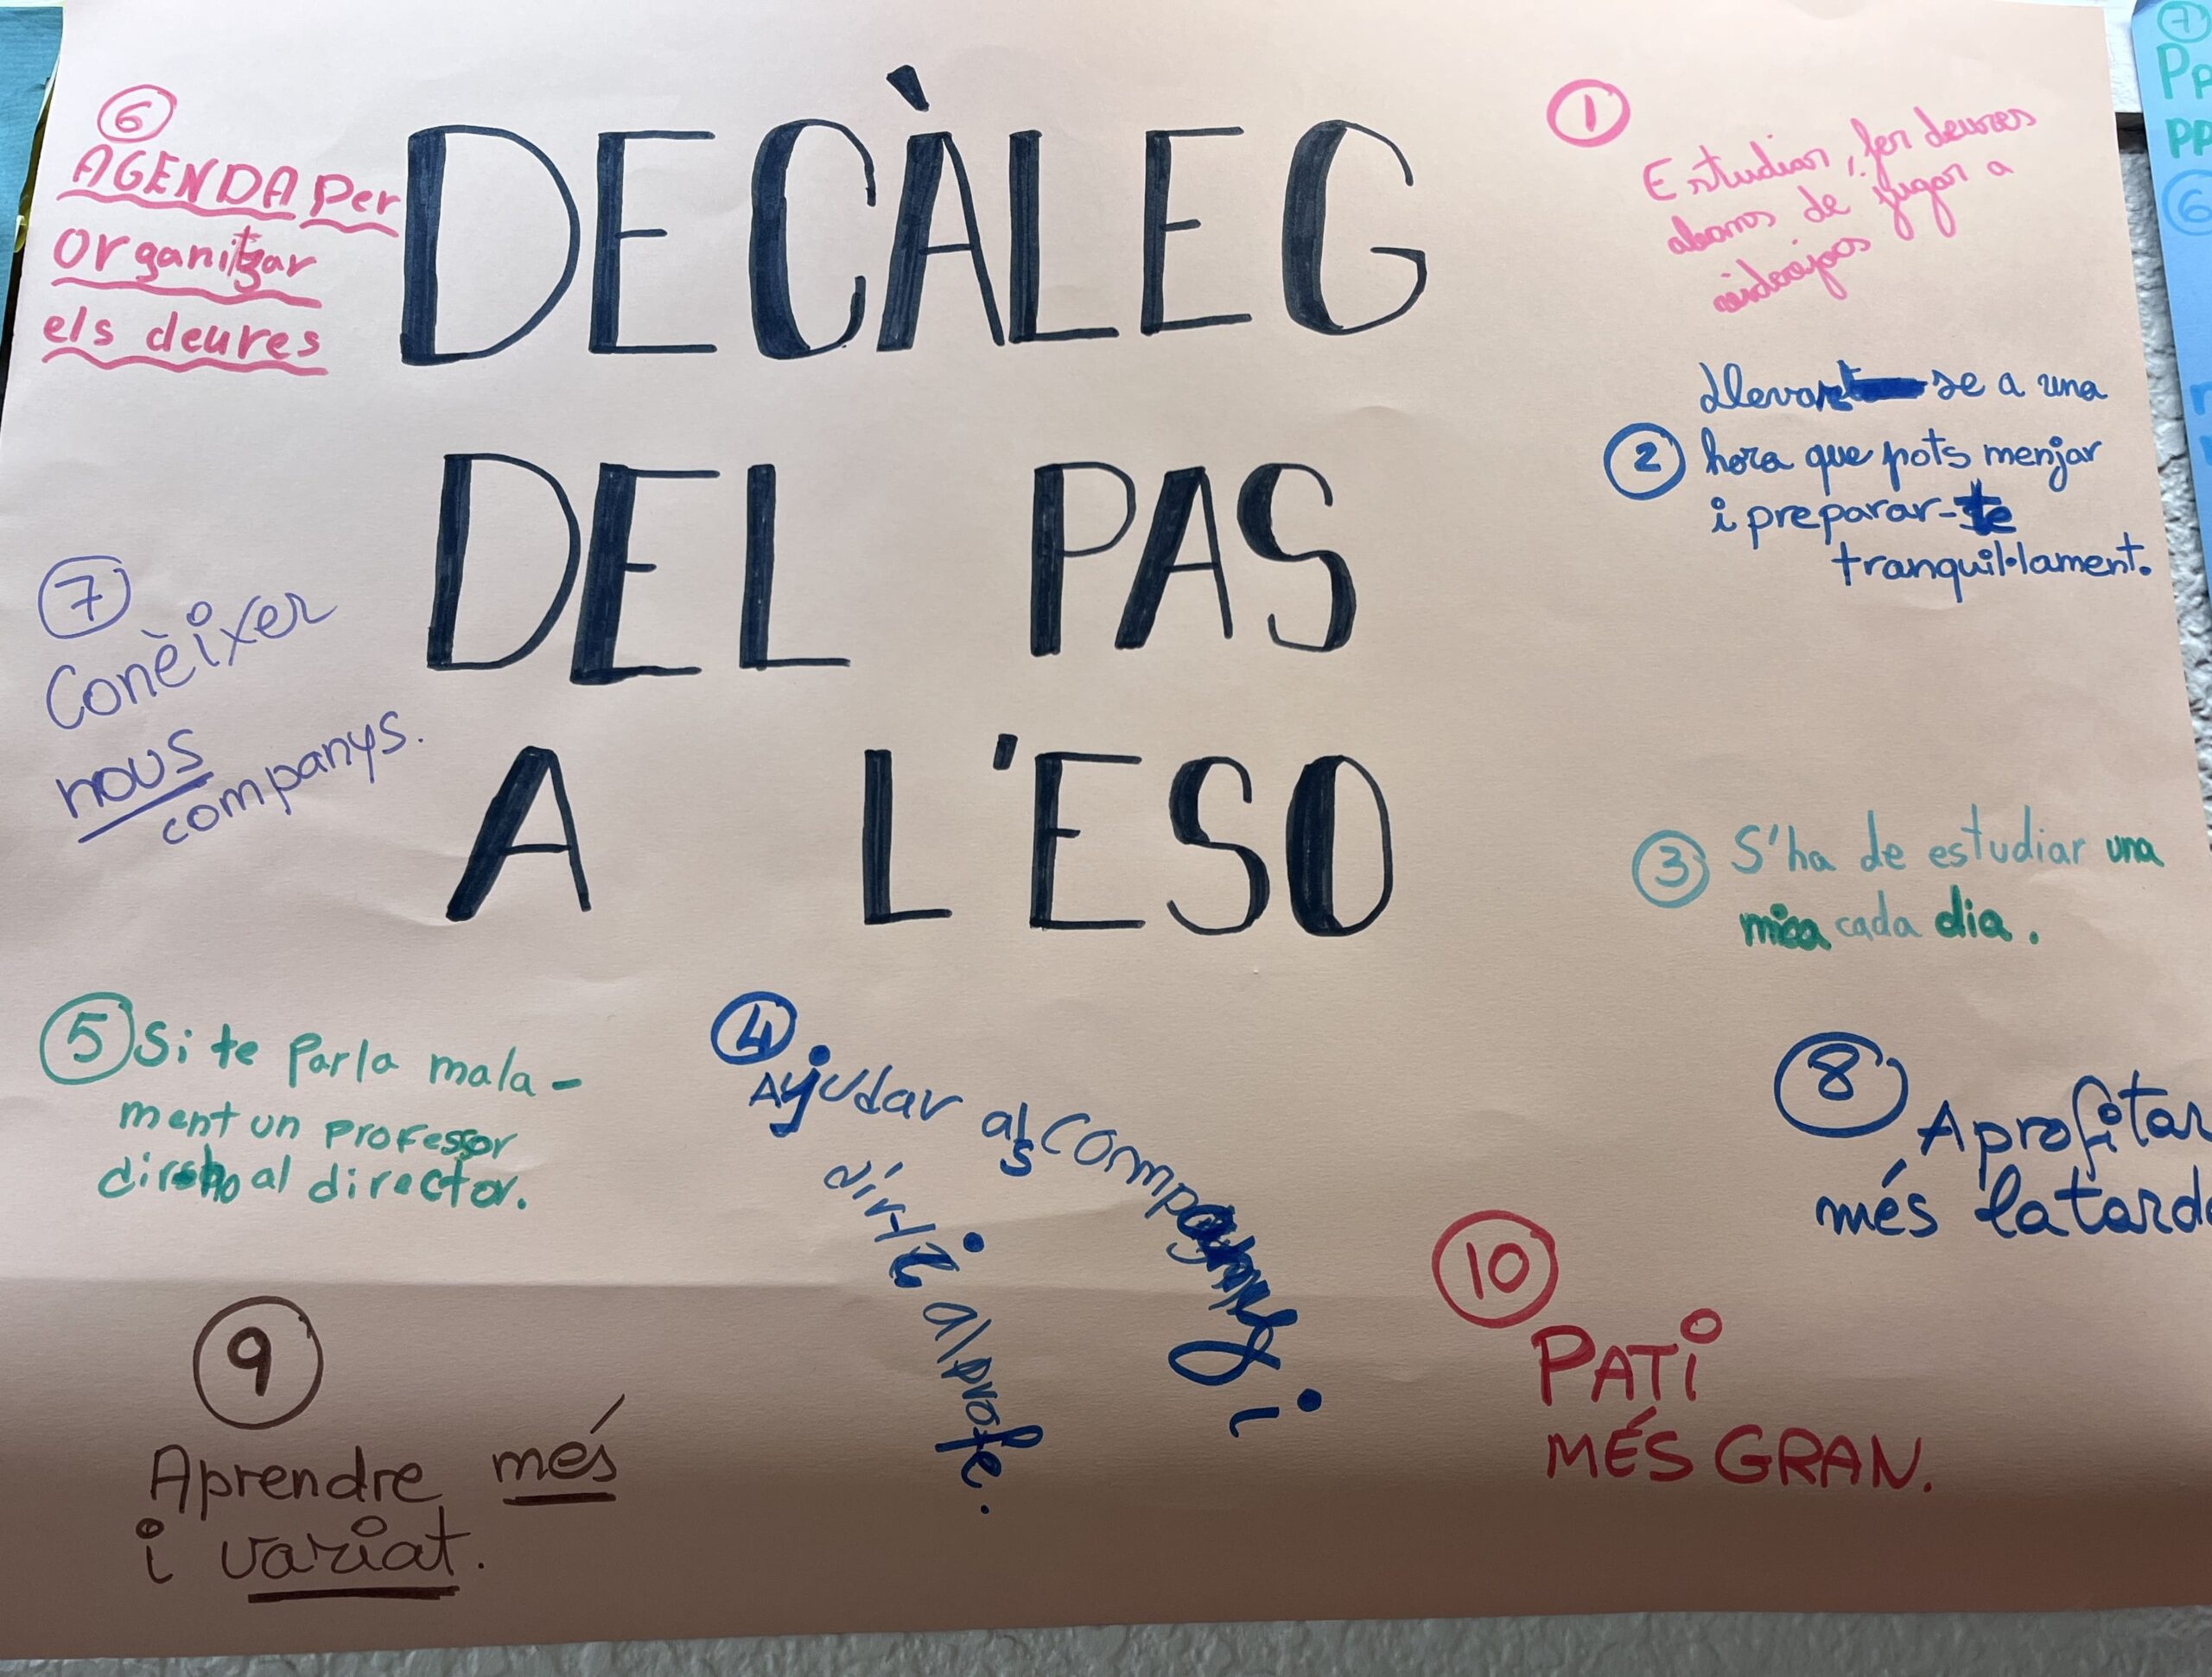 DECÀLEG
DEL PAS
A L'ESO
①
Estudiar, fer deures
abans de jugar a
videojocs
②
Llevar-se a una
hora que pots menjar
i preparar-te
tranquil·lament.
③ S'ha de estudiar una
mica cada dia.
④
Ajudar als companys i
dir-li al profe.
⑤ Si te parla mala-
ment un professor
dir-ho al director.
⑥
AGENDA per
organitzar
els deures
⑦
Conèixer
nous
companys.
⑧
Aprofitar
més la tarde
⑨
Aprendre més
i variat.
⑩
PATi
MÉS GRAN.
⑦
⑥